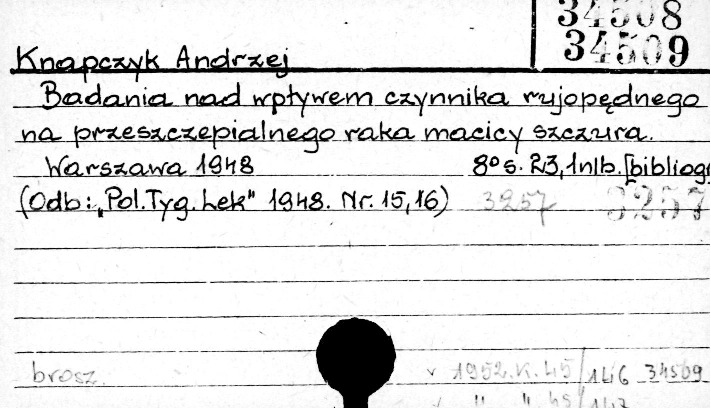 34508
34509
Knapczyk Andrzej
Badania nad wpływem czynnika rujopędnego
na przeszczepialnego raka macicy szczura.
Warszawa 1948 8° s. 23, 1 nlb. [bibliogr
(Odb: „Pol. Tyg. Lek" 1948. Nr. 15, 16) 3257 3257
brosz. v 1952.K.45/146 34509
v " " 45/147